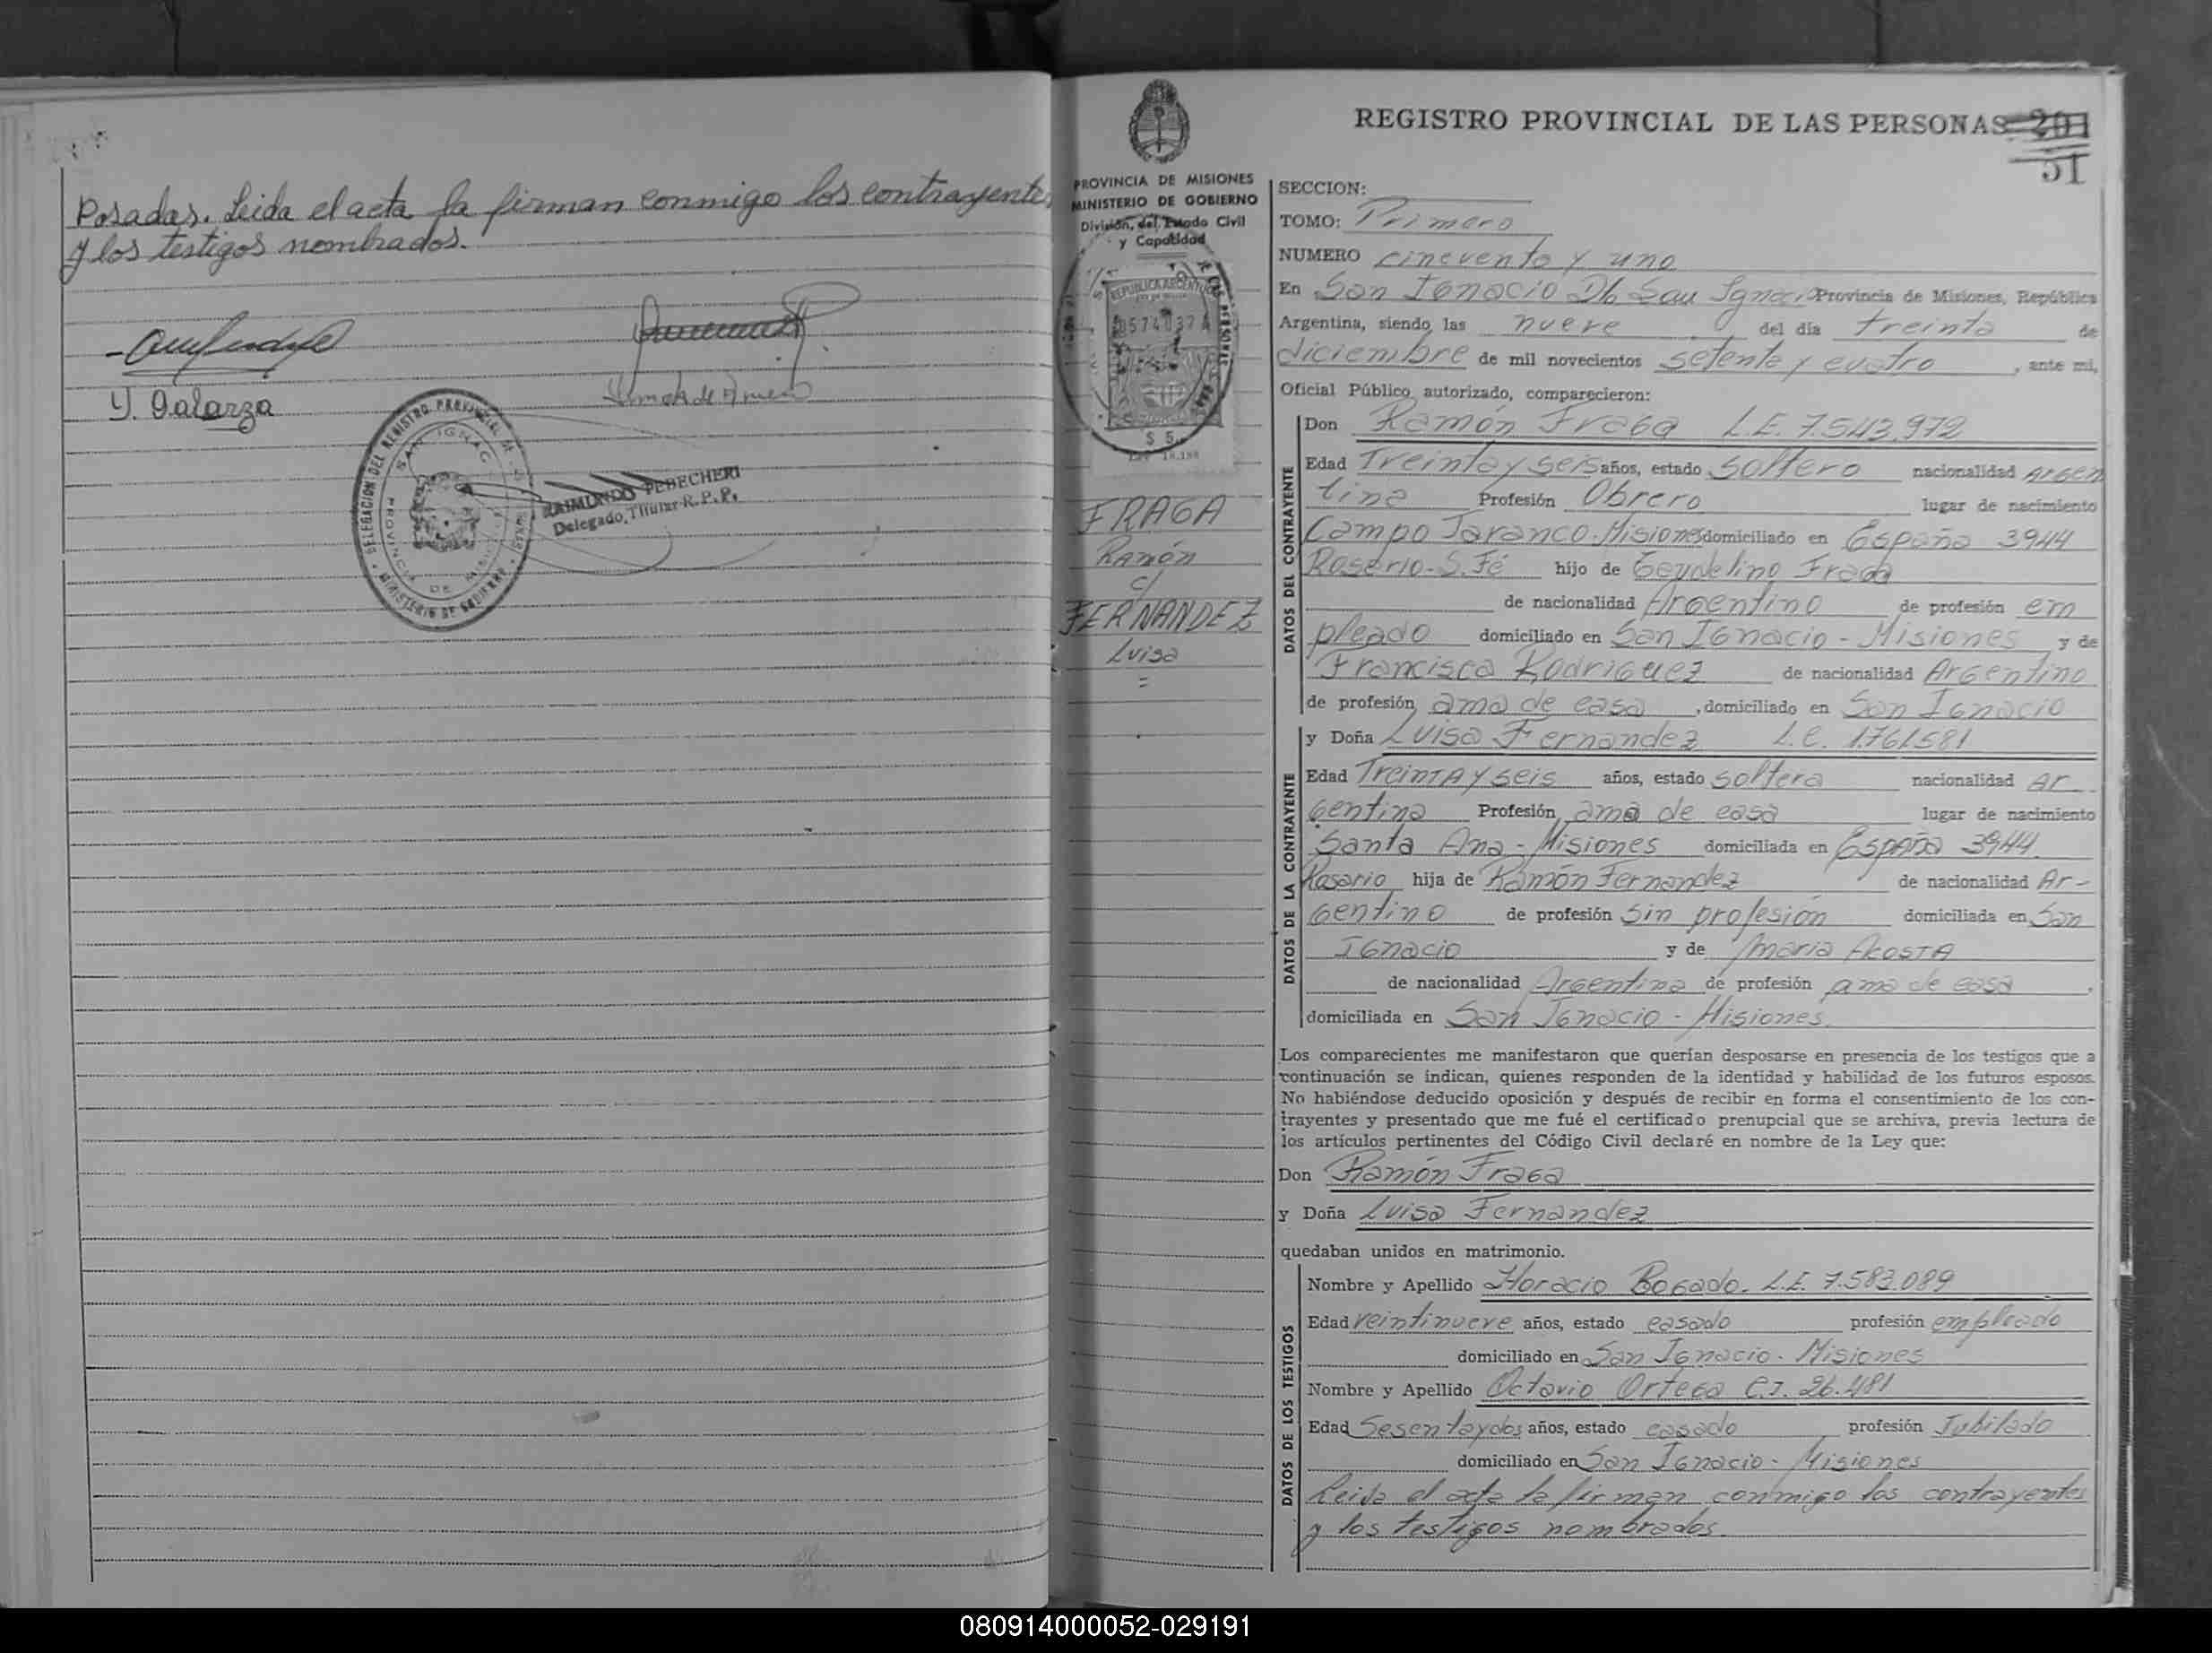 Posadas. Leida el acta la firman conmigo los contrayentes
y los testigos nombrados.
Y. Galarza
DELEGACION DEL REGISTRO PROVINCIAL DE LAS
SAN IGNACIO
PROVINCIA DE MISIONES
MINISTERIO DE GOBIERNO
RAIMUNDO PEBECHERI
Delegado Titular R. P. P.
PROVINCIA DE MISIONES
MINISTERIO DE GOBIERNO
División del Estado Civil
y Capacidad
REPUBLICA ARGENTINA
$ 5
FRAGA
Ramón
c/
FERNANDEZ
Luisa
=
REGISTRO PROVINCIAL DE LAS PERSONAS 201
51
SECCION:
TOMO: Primero
NUMERO cincuenta y uno
En San Ignacio Dto San Ignacio Provincia de Misiones, República
Argentina, siendo las nueve del día treinta de
diciembre de mil novecientos setenta y cuatro, ante mi,
Oficial Público autorizado, comparecieron:
DATOS DEL CONTRAYENTE
Don Ramón Fraga L.E. 7.543.972
Edad Treinta y seis años, estado soltero nacionalidad Argen
tina Profesión Obrero lugar de nacimiento
Campo Taranco-Misiones domiciliado en España 3944
Rosario-S.Fé hijo de Fraga
de nacionalidad Argentino de profesión em
pleado domiciliado en San Ignacio - Misiones y de
Francisca Rodriguez de nacionalidad Argentino
de profesión ama de casa, domiciliado en San Ignacio
DATOS DE LA CONTRAYENTE
y Doña Luisa Fernandez L.C. 1.761.581
Edad Treinta y seis años, estado soltera nacionalidad Ar
gentina Profesión ama de casa lugar de nacimiento
Santa Ana - Misiones domiciliada en España 3944
Rosario hija de Ramón Fernandez de nacionalidad Ar-
gentino de profesión sin profesión domiciliada en San
Ignacio y de Maria Acosta
de nacionalidad Argentina de profesión ama de casa,
domiciliada en San Ignacio - Misiones
Los comparecientes me manifestaron que querían desposarse en presencia de los testigos que a
continuación se indican, quienes responden de la identidad y habilidad de los futuros esposos.
No habiéndose deducido oposición y después de recibir en forma el consentimiento de los con-
trayentes y presentado que me fué el certificado prenupcial que se archiva, previa lectura de
los artículos pertinentes del Código Civil declaré en nombre de la Ley que:
Don Ramón Fraga
y Doña Luisa Fernandez
quedaban unidos en matrimonio.
DATOS DE LOS TESTIGOS
Nombre y Apellido Horacio Bogado. L.E. 7.583.089
Edad veintinueve años, estado casado profesión empleado
domiciliado en San Ignacio - Misiones
Nombre y Apellido Octavio Ortega C.I. 26.481
Edad Sesentaydos años, estado casado profesión Jubilado
domiciliado en San Ignacio - Misiones
Leida el acta la firman conmigo los contrayentes
y los testigos nombrados.
080914000052-029191